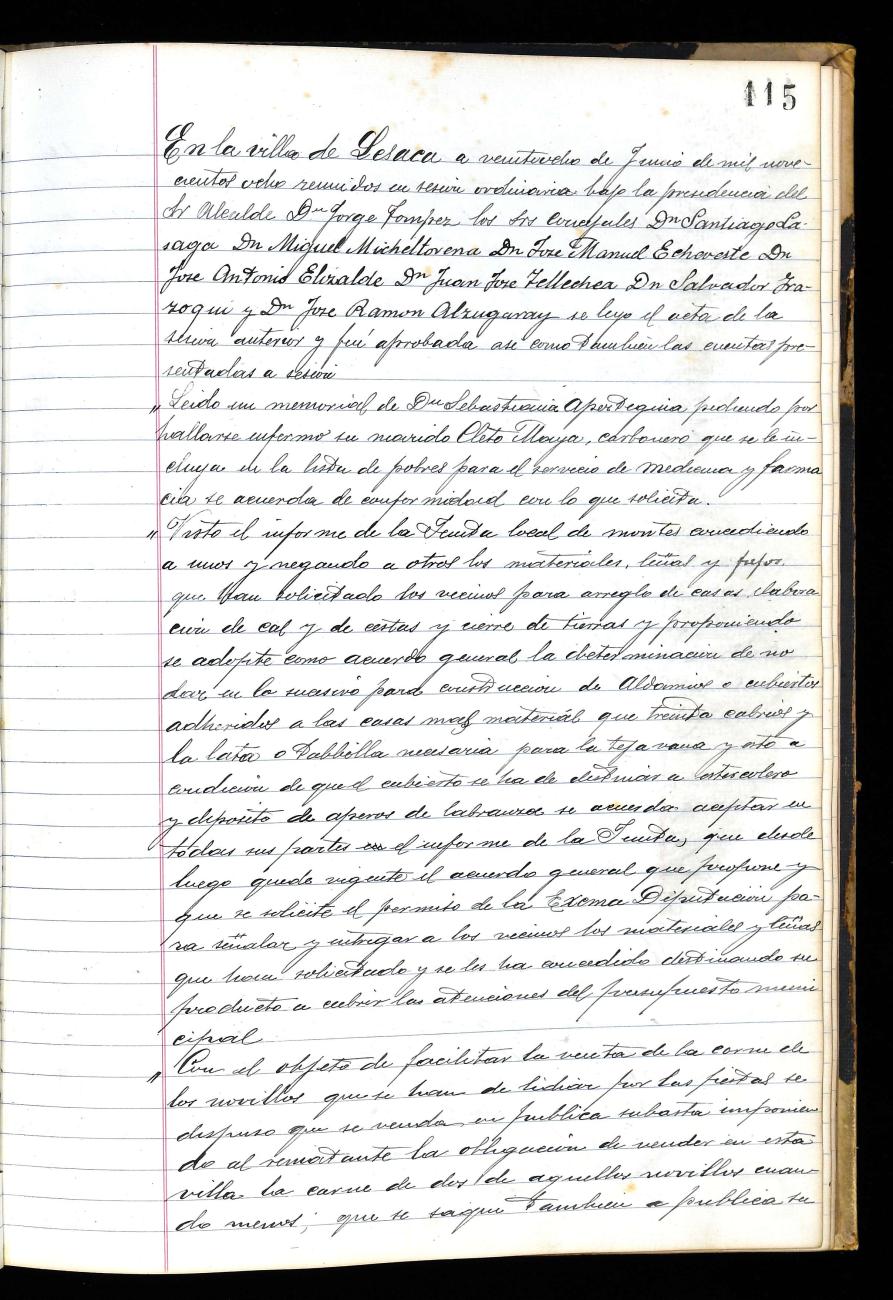 115
En la villa de Lesaca a veintiocho de Junio de mil nove-
cientos ocho reunidos en sesion ordinaria bajo la presidencia del
Sr Alcalde Dn Jorge Tompez los Srs concejales Dn Santiago La-
saga Dn Miguel Micheltorena Dn Jose Manuel Echoveste Dn
Jose Antonio Elizalde Dn Juan Jose Tellechea Dn Salvador Ira-
zoqui y Dn Jose Ramon Alzugaray se leyo el acta de la
sesion anterior y fué aprobada asi como tambien las cuentas pre-
sentadas a sesion
„ Leido un memorial de Dn Sebastiana Apeztegina pidiendo por
hallarse enfermo su marido Cleto Maya, carbonero que se le in-
cluya en la lista de pobres para el servicio de medicina y farma
cia se acuerda de conformidad con lo que solicita.
„ Visto el informe de la Junta local de montes concediendo
a unos y negando a otros los materiales, leñas y
que han solicitado los vecinos para arreglo de casas elabora
cion de cal y de cestas y cierre de tierras y proponiendo
se adopte como acuerdo general la determinacion de no
dar en lo sucesivo para construccion de Aldamios o cubiertos
adheridos a las casas mas materiál que treinta cabrios y
la lata o tabbilla necesaria para la teja vana y esto a
condicion de que el cubierto se ha de destinar a estercolero
y deposito de aperos de labranza se acuerda aceptar en
todas sus partes el informe de la Junta, que desde
luego quede vigente el acuerdo general que propone y
que se solicite el permiso de la Exema Diputacion pa-
ra señalar y entregar a los vecinos los materiales y leñas
que han solicitado y se les ha concedido destinando su
producto a cubrir las atenciones del presupuesto muni
cipal
„ Con el objeto de facilitar la venta de la carne de
los novillos que se han de lidiar por las fiestas se
dispuso que se venda en publica subasta imponien
do al rematante la obligacion de vender en esta
villa la carne de dos de aquellos novillos cuan
do menos; que se saque tambien a publica su